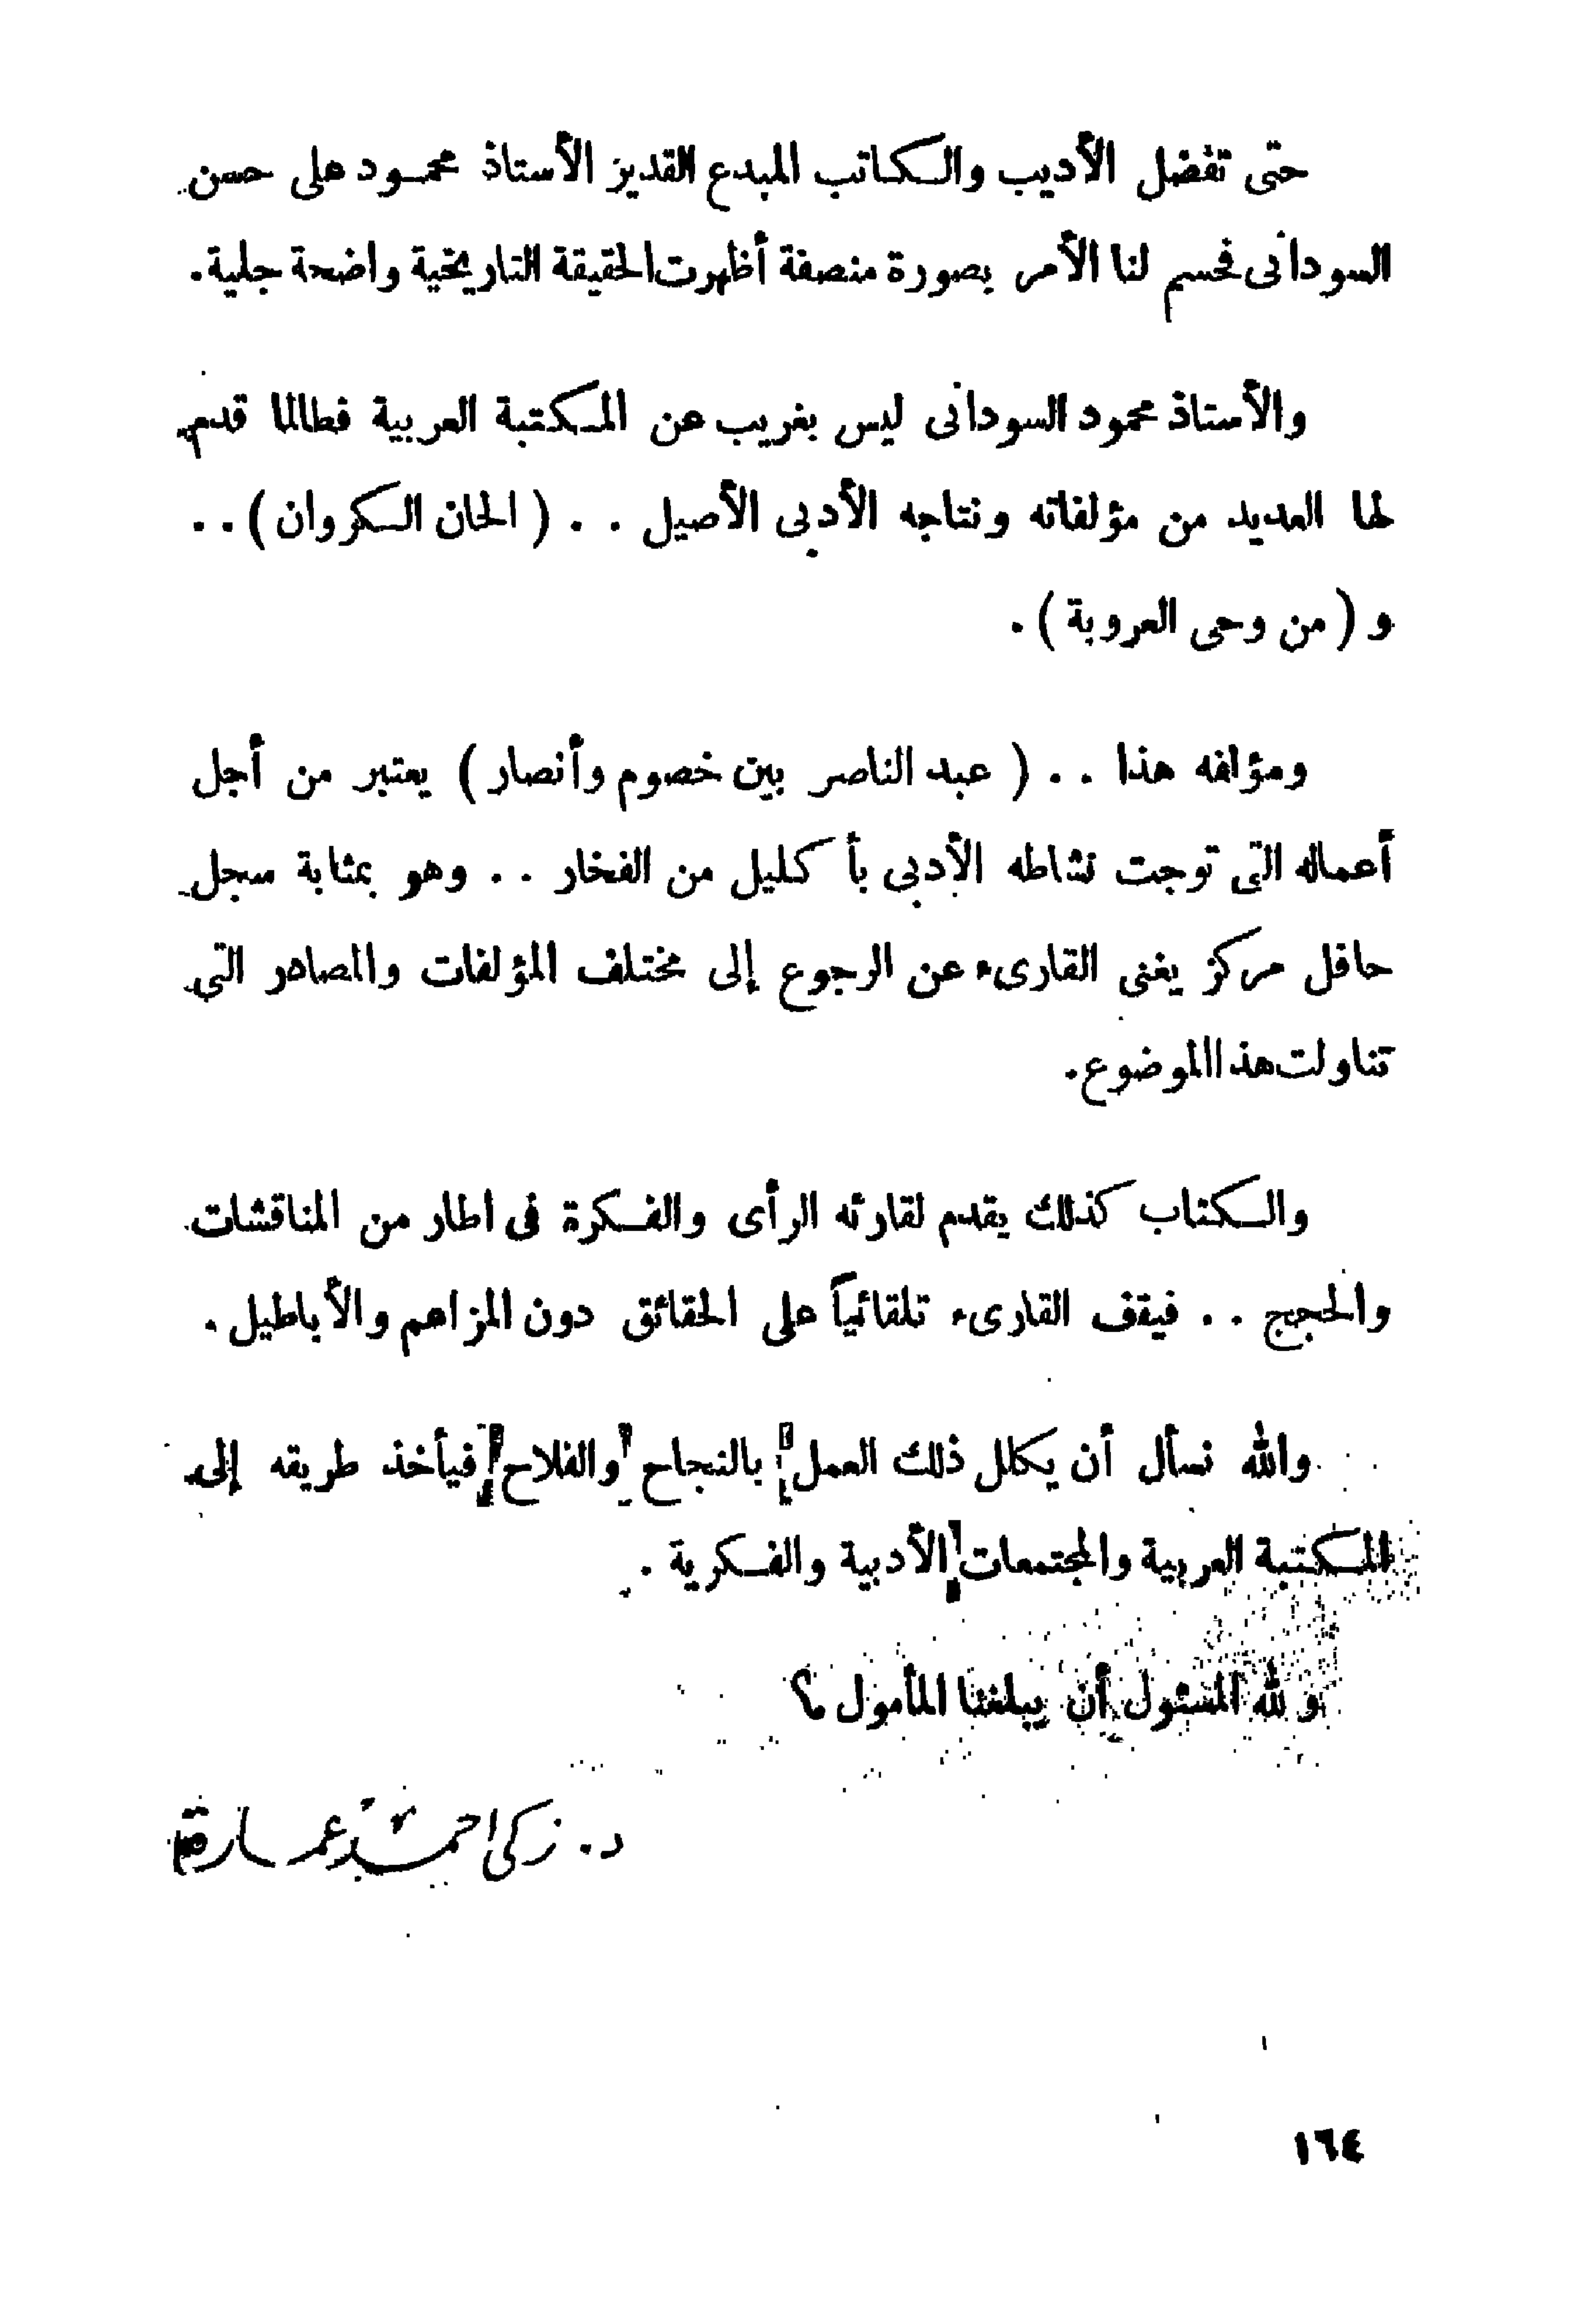 حتى تفضل الأديب والكاتب المبدع القدير الأستاذ محمود على حسن
السودانى فحسم لنا الأمر بصورة منصفة أظهرت الحقيقة التاريخية واضحة جلية.
والأستاذ محمود السودانى ليس بغريب عن المكتبة العربية فطالما قدم
لها العديد من مؤلفاته ونتاجه الأدبى الأصيل . . ( الحان الكروان ) . .
و ( من وحى العروبة ) .
ومؤلفه هذا . . ( عبد الناصر بين خصوم وأنصار ) يعتبر من أجل
أعماله التى توجت نشاطه الأدبى بأ كليل من الفخار . . وهو بمثابة سجل
حافل مركز يغنى القارىء عن الرجوع إلى مختلف المؤلفات والمصادر التى
تناولت هذا الموضوع.
والكتاب كذلك يقدم لقارئه الرأى والفكرة فى اطار من المناقشات
والحجج . . فيقف القارىء تلقائياً على الحقائق دون المزاعم والأباطيل .
والله نسأل أن يكلل ذلك العمل بالنجاح والفلاح فيأخذ طريقه إلى
المكتبة العربية والمجتمعات الأدبية والفكرية .
و لله المسئول أن يبلغنا المأمول ؟
د. زكى احمد عمارة
١٦٤